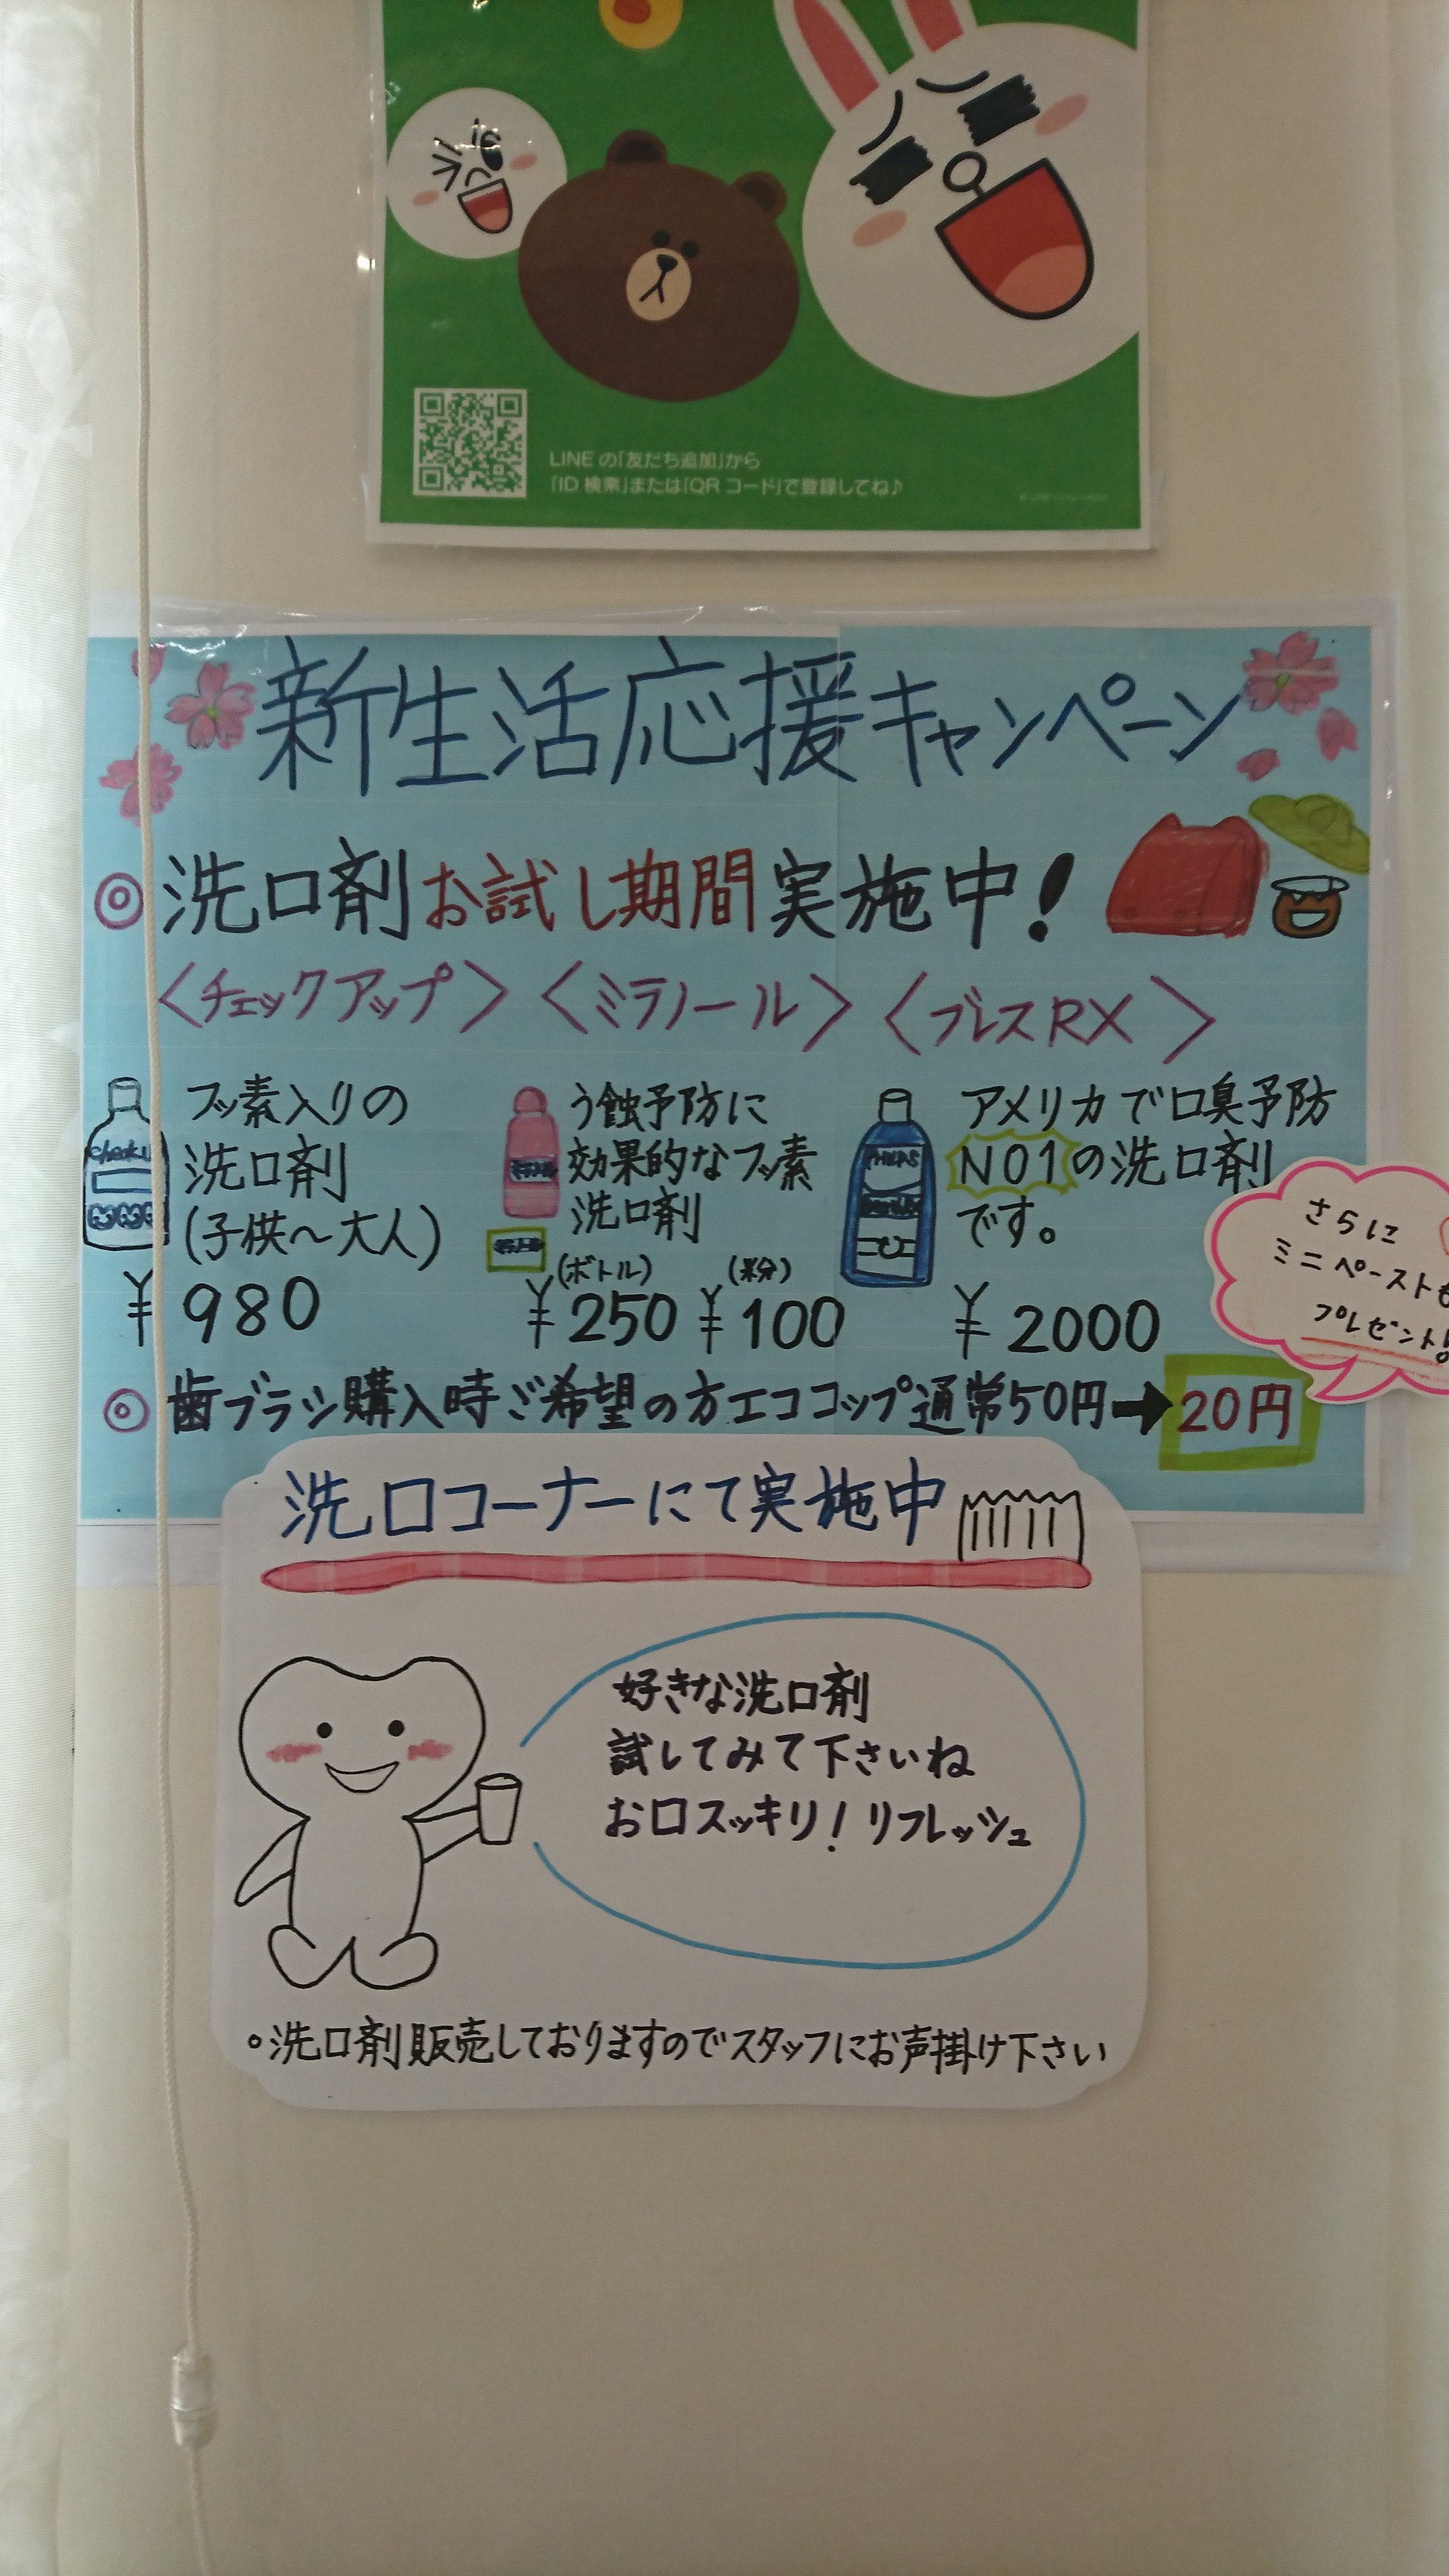 LINE の「友だち追加」から
「ID 検索」または「QR コード」で登録してね♪
新生活応援キャンペーン
◎洗口剤お試し期間実施中!
〈チェックアップ〉〈ミラノール〉〈ブレスRX〉
フッ素入りの
洗口剤
(子供〜大人)
¥980
う蝕予防に
効果的なフッ素
洗口剤
(ボトル) (粉)
¥250 ¥100
アメリカで口臭予防
NO1の洗口剤
です。
¥2000
さらに
ミニペーストも
プレゼント!
◎歯ブラシ購入時ご希望の方エココップ通常50円→20円
洗口コーナーにて実施中
好きな洗口剤
試してみて下さいね
お口スッキリ!リフレッシュ
○洗口剤販売しておりますのでスタッフにお声掛け下さい